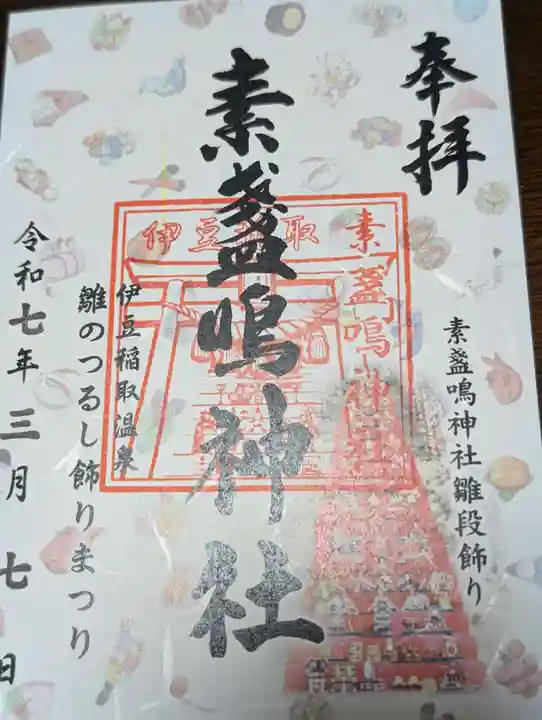 奉拝
素盞嗚神社雛段飾り
素盞嗚神社
伊豆稲取
素盞嗚神社
伊豆稲取温泉
雛のつるし飾りまつり
令和七年三月七日